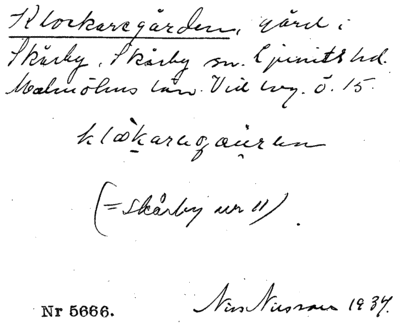 Klockaregården, gård i
Skårby, Skårby sn. Ljunits hd.
Malmöhus län. Vid lvg. ö. 15.
(= Skårby nr 11)
Nr 5666. Nils Nilsson 1934.